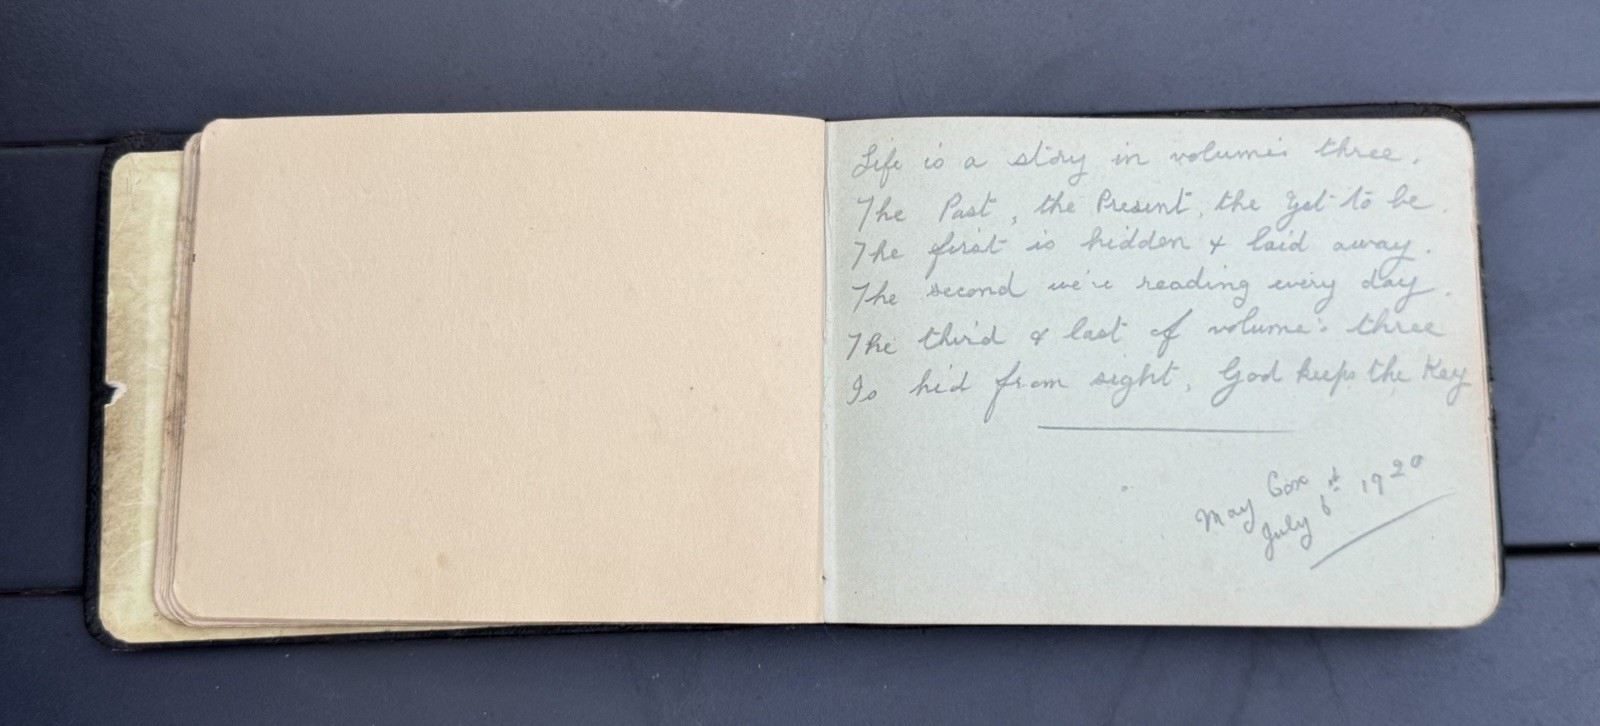 Life is a story in volumes three.
The Past, the Present, the Yet to be.
The first is hidden & laid away.
The second we're reading every day.
The third & last of volumes three
Is hid from sight, God keeps the Key
May Cox
July 6th 1920